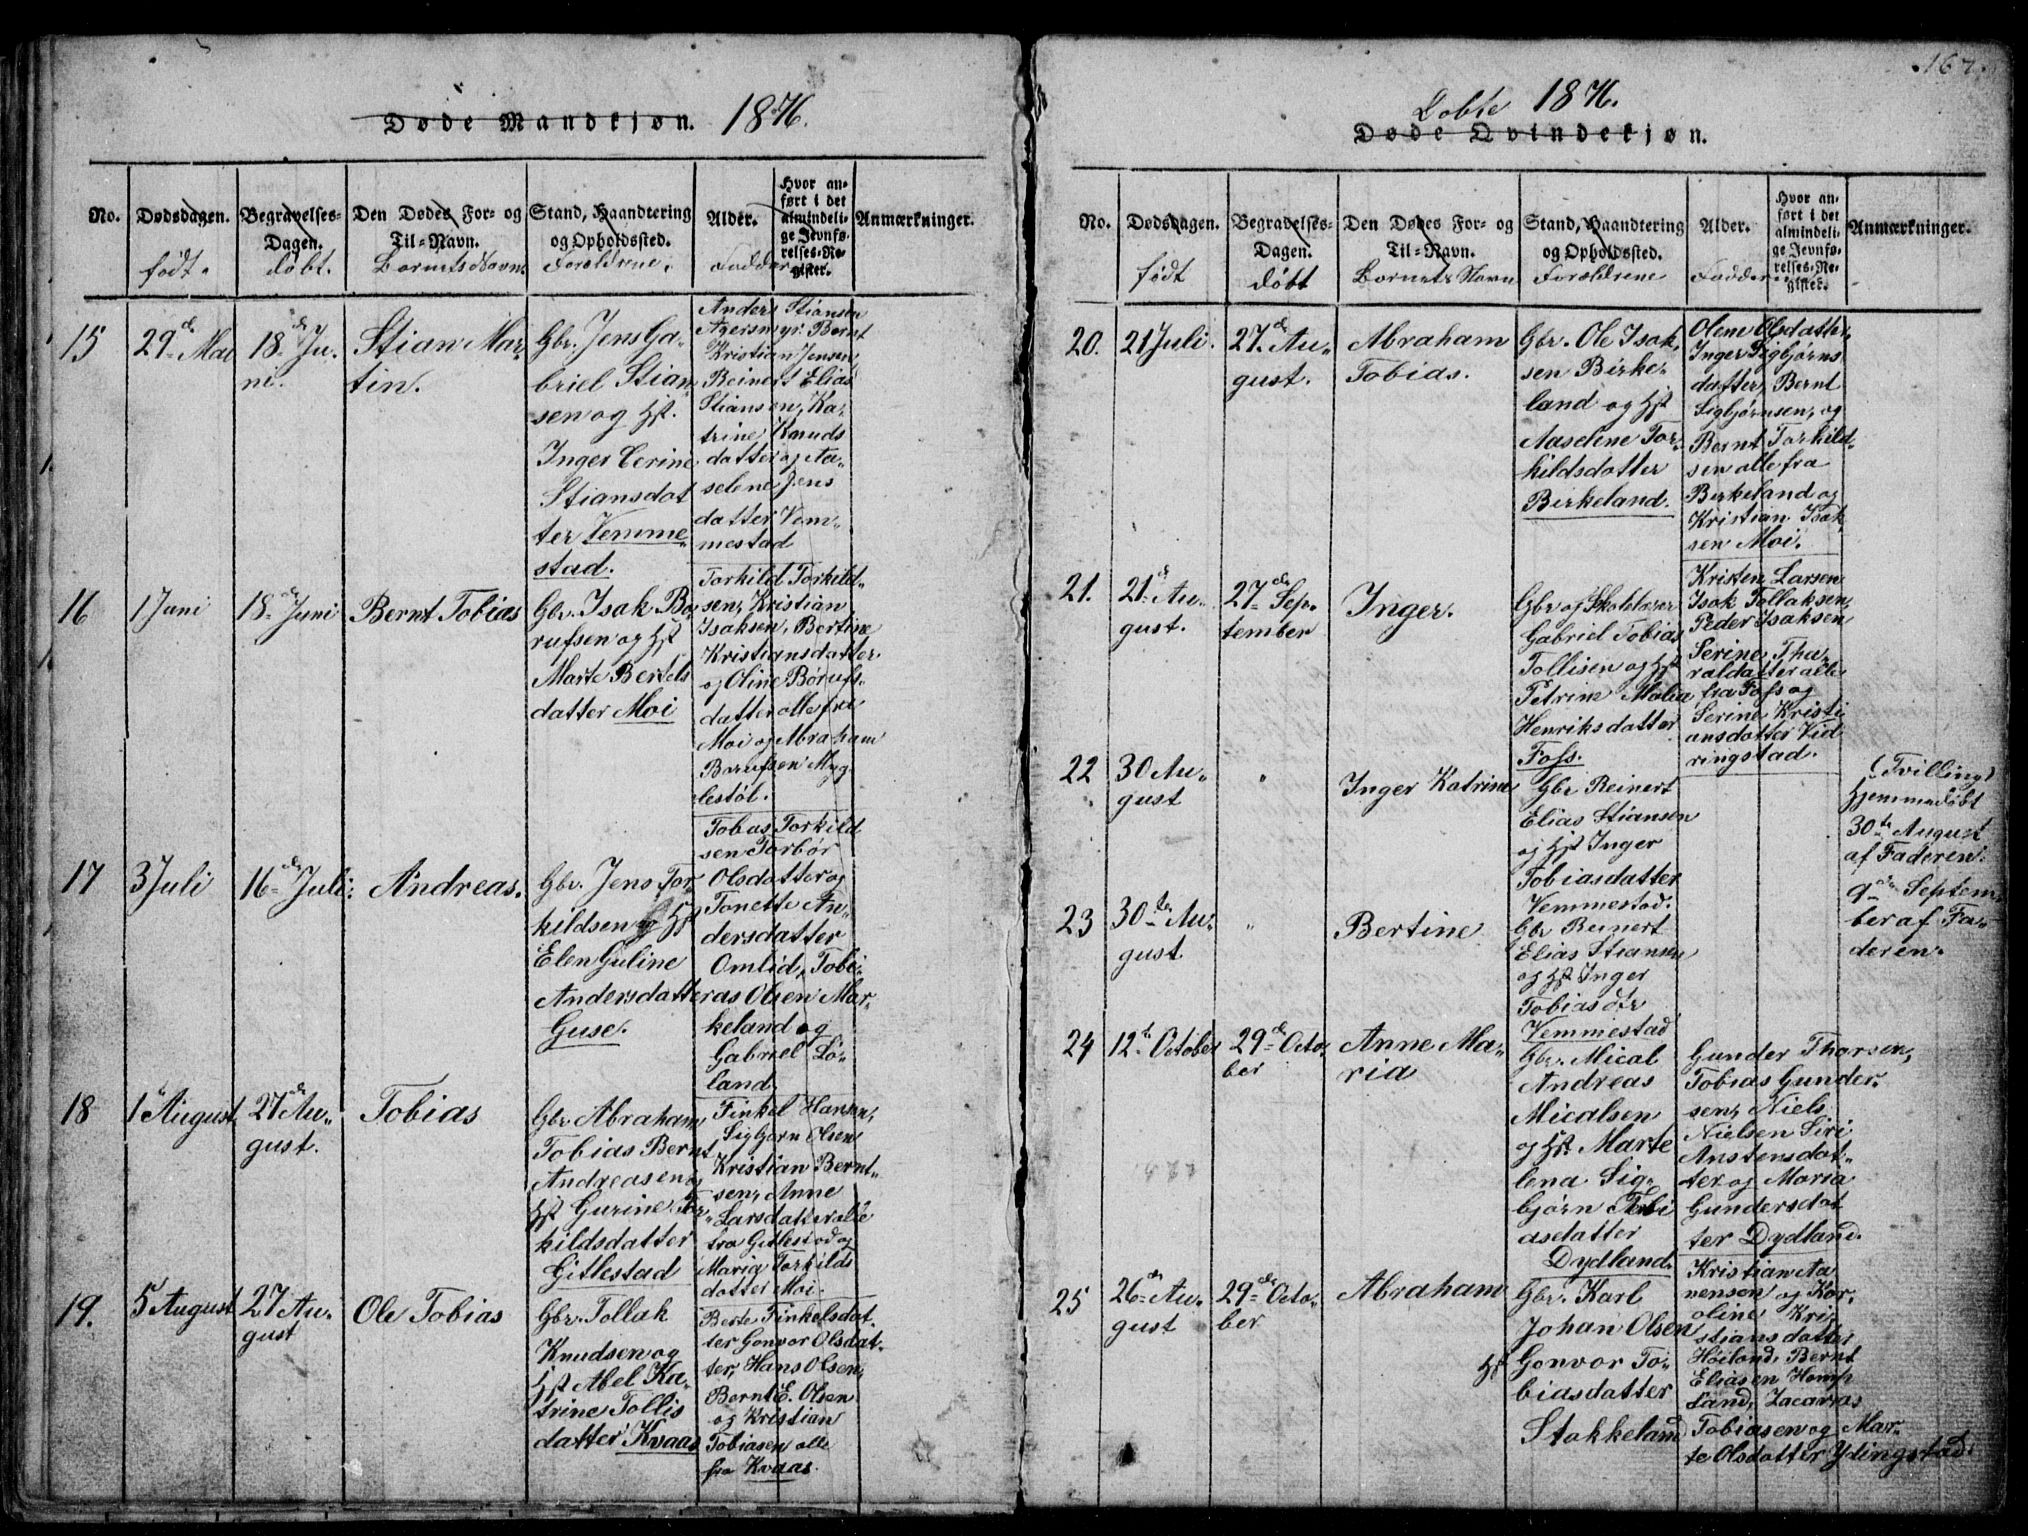 Døde Mandkjøn. 1876.
No.
Dødsdagen.
født.
Begravelses-
Dagen.
døbt.
Den Dødes For- og
Til-Navn.
Barnets Navn
Stand, Haandtering
og Opholdssted.
Forældrene.
Alder.
Faddere
Hvor an-
ført i det
almindeli-
ge Jevnfø-
relses-Re-
gister.
Anmærkninger.
15
29de Mai
18de Ju-
ni.
Stian Mar-
tin.
Gbr. Jens Ga-
briel Stian-
sen og Hst.
Inger Serine
Stiansdat
ter Vemme-
stad.
Anders Stiansen
Agersmyr. Bernt
Kristian Jensen,
Reinert Elias
Stiansen, Ka-
trine Knuds
datter og Aa-
selene Jens
datter Vem-
mestad
16
1 Juni
18de Juni
Bernt Tobias
Gbr. Isak Bo-
rufsen og Hst
Marte Bertels
datter Moi
Torkild Torkild-
sen, Kristian
Isaksen, Bertine
Kristiansdatter
og Oline Børufs-
datter alle fra
Moi og Abraham
Børufsen Myg-
lestøl.
17
3 Juli
16de Juli.
Andreas.
Gbr. Jens Tor-
kildsen og Hst
Elen Guline
Andersdatter
Guse.
Tobas Torkild
sen Torbør
Olsdatter og
Tonette An-
dersdatter
Omlid, Tobi-
as Olsen Mar-
keland og
Gabriel Lø-
land.
18
1 August
27de Au-
gust.
Tobias
Gbr. Abraham
Tobias Bernt
Andreasen og
Hst Gurine Tor-
kildsdatter
Gitlestad
Finkel Hansen,
Sigbjørn Olsen
Kristian Bernt-
sen, Anne
Larsdatter alle
fra Gitlestad og
Maria Torkilds
datter Moi.
19.
5 August
27 Au-
gust
Ole Tobias
Gbr. Tollak
Knudsen og
Hst Abel Ka-
trine Tollis
datter Kvaas
Berte Finkelsdat-
ter Gonvor Olsdat-
ter, Hans Olsen,
Bernt E. Olsen
og Kristian
Tobiasen alle
fra Kvaas.
167.
Døbte 1876.
Døde Qvindekjøn.
No.
Dødsdagen.
født
Begravelses-
Dagen.
døbt
Den Dødes For- og
Til-Navn.
Barnets Navn
Stand, Haandtering
og Opholdssted.
Forældrene
Alder.
Faddere
Hvor an-
ført i det
almindeli-
ge Jevnfø-
relses-Re-
gister.
Anmærkninger.
20.
21 Juli.
27de Au-
gust.
Abraham
Tobias.
Gbr. Ole Isak-
sen Birke-
land og Hst
Aaselene Tor-
kildsdatter
Birkeland.
Olene Olsdatter,
Inger Sigbjørns
datter, Bernt
Sigbjørnsen, og
Bernt Torkild-
sen alle fra
Birkeland og
Kristian Isak-
sen Moi.
21.
21de Au-
gust.
27de Sep-
tember
Inger.
Gbr og Skolelærer
Gabriel Tobias
Tollisen og Hst
Petrine Malia
Henriksdatter
Foss.
Kristen Larsen
Isak Tollaksen,
Peder Isaksen
Serine Tha-
raldatter alle
fra Foss og
Serine Kristi
ansdatter Vid
ringstad.
22
30 Au-
gust
"
Inger Katrine
Gbr Reinert
Elias Stiansen
og Hst Inger
Tobiasdatter
Vemmestad.
(Tvilling)
Hjemmedøbt
30te August
af Faderen.
23
30te Au-
gust
"
Bertine
Gbr Reinert
Elias Stiansen
og Hst Inger
Tobiasdtr
Vemmestad
9de Septem-
ber af Fa-
deren.
24
12te October
29de Octo-
ber
Anne Ma-
ria
Gbr. Mical
Andreas
Micalsen
og Hst. Marte
lena Sig-
bjørn Tobi
asdatter
Dydland.
Gunder Thorsen,
Tobias Gunder-
sen, Niels
Nielsen Siri
Anstensdat-
ter og Maria
Gundersdat
ter Dydland.
25
26de Au-
gust
29de Octo-
ber
Abraham
Gbr. Karl
Johan Olsen
Hst Gonvor To-
biasdatter
Stokkeland
Kristian Aa
nensen og Kor-
oline Kri-
stiansdatter
Høiland, Bernt
Eliasen Homp
land, Zacarias
Tobiasen og Mar-
te Olsdatter Ydingstad.